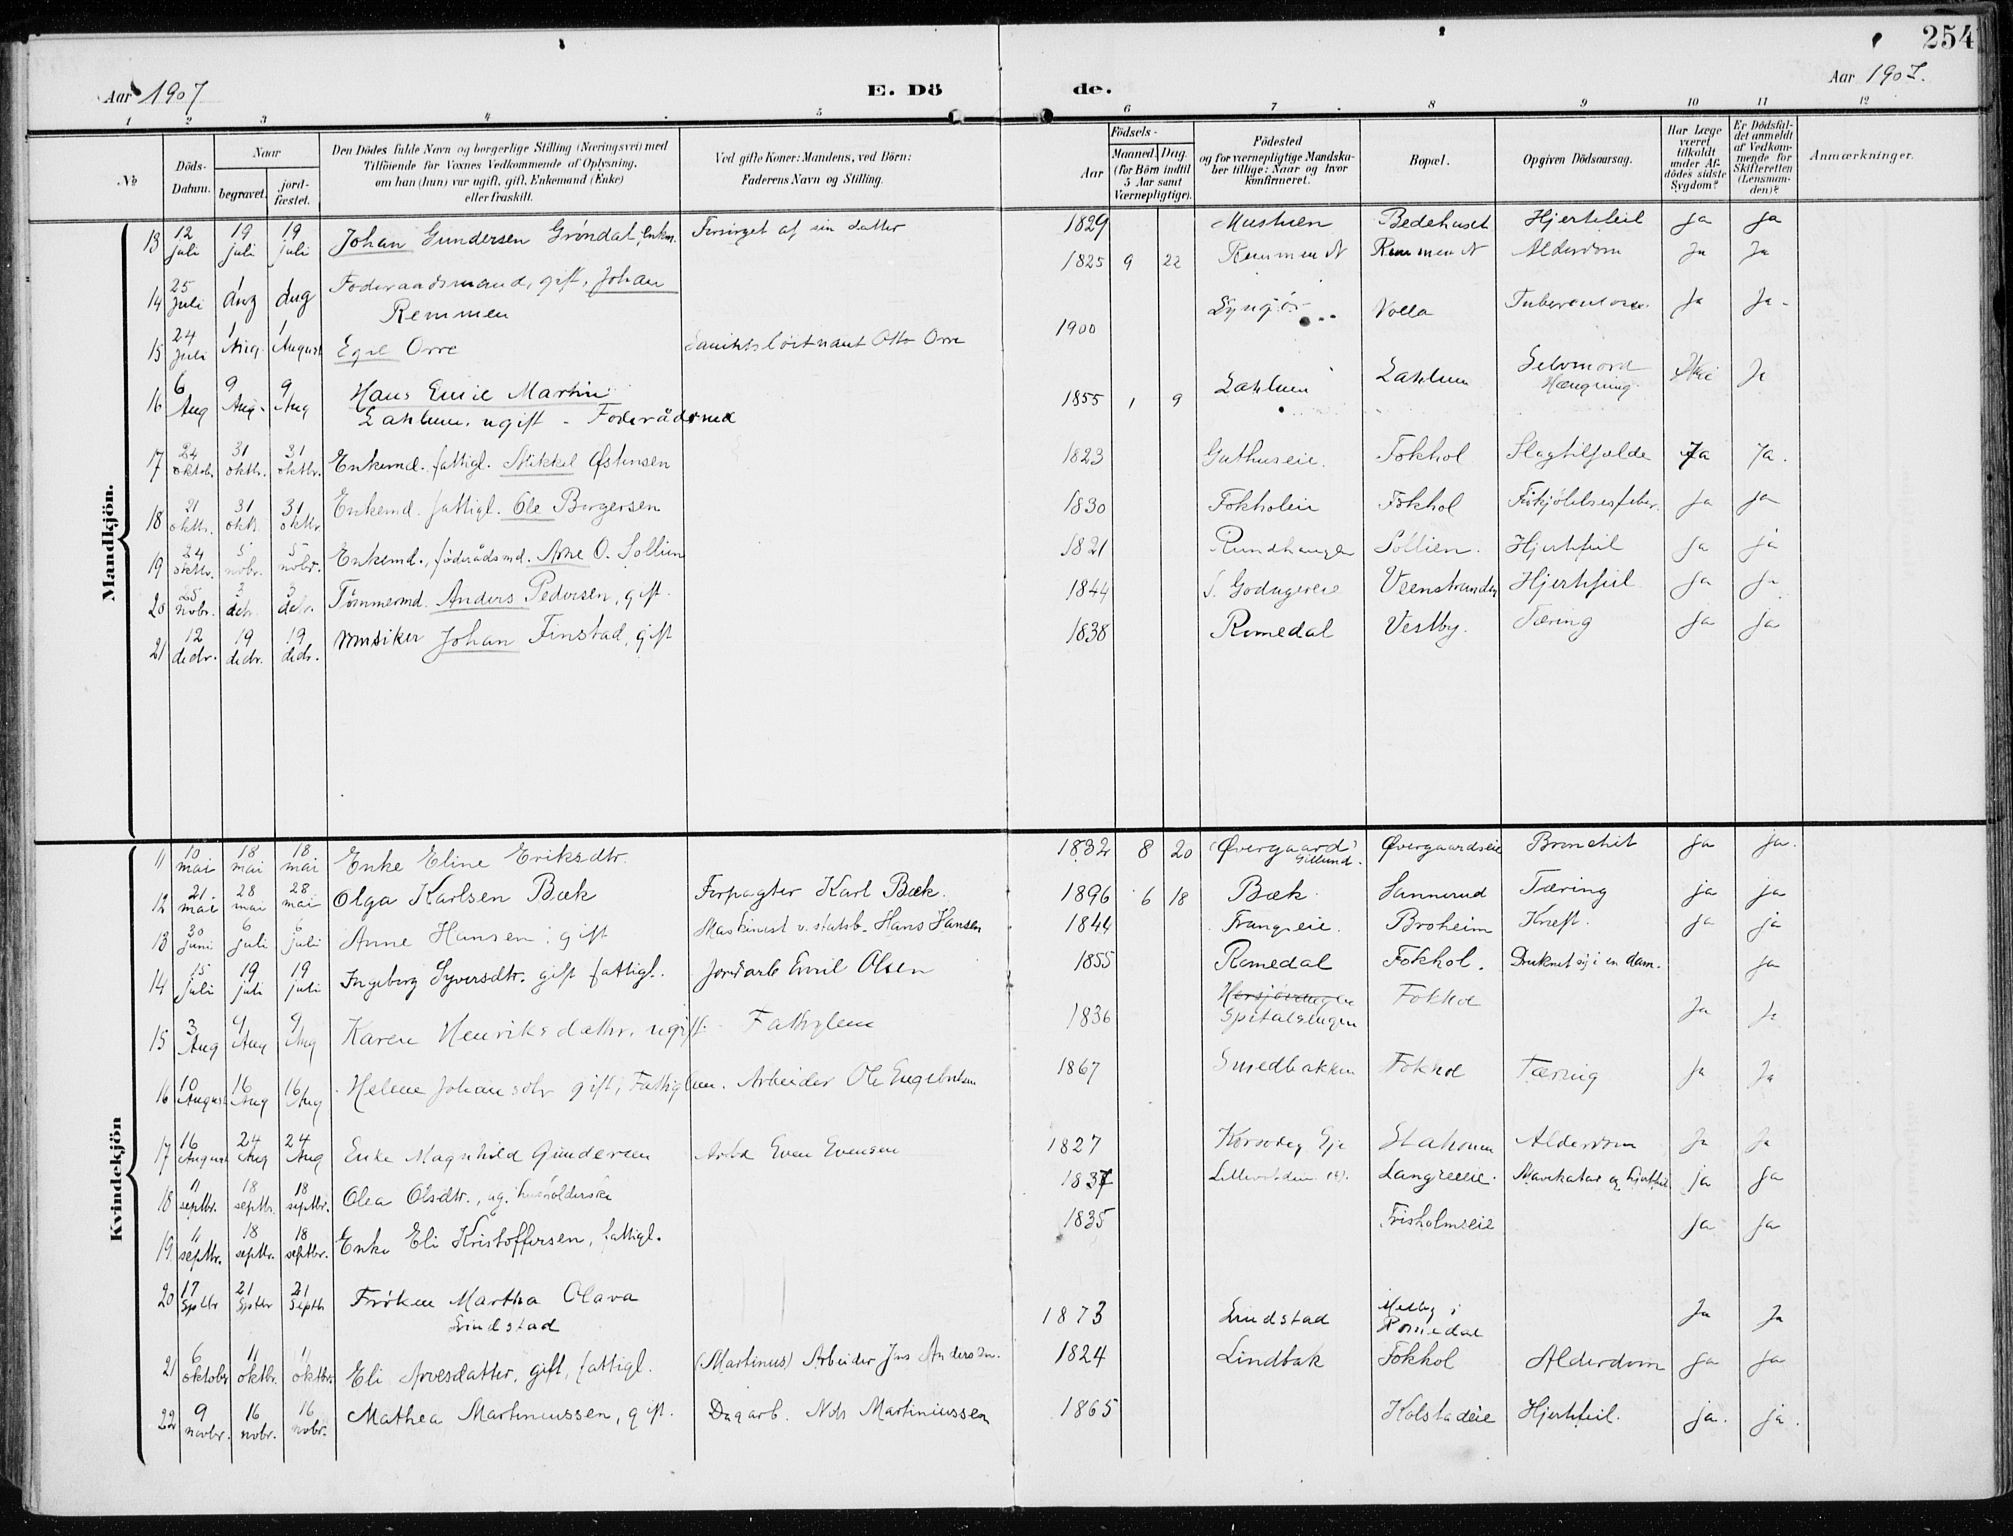 254
Aar 1907
E. Dö
de.
Aar 1907.
1 2 3 4 5 6 7 8 9 10 11 12
№
Döds-
Datum.
Naar
begravet.
jord-
fæstet.
Den Dödes fulde Navn og borgerlige Stilling (Næringsvei) med
Tilföiende for Voxnes Vedkommende af Oplysning,
om han (hun) var ugift, gift, Enkemand (Enke)
eller fraskilt.
Ved gifte Koner: Mandens, ved Börn:
Faderens Navn og Stilling.
Födsels-
Aar
Maaned. Dag.
(for Börn indtil
5 Aar samt
Værnepligtige).
Födested
og for værnepligtige Mandska-
ber tillige: Naar og hvor
konfirmeret.
Bopæl.
Opgiven Dödsaarsag.
Har Læge
været
tilkaldt
under Af-
dödes sidste
Sygdom?
Er Dödsfal-
det anmeldt
af Vedkom-
mende for
Skifteretten
(Lensman-
den)?
Anmærkninger.
Mandkjön.
13 12 juli 19 juli 19 juli Johan Gundersen Grøndal, enkm. Forsørget af sin datter 1829 Mustuen Bedehuset Hjertefeil ja ja
14 25 Juli 1 Aug 1 Aug Foderaadsmand, gift, Johan 1825 9 22 Remmen N Remmen N Alderdom Ja Ja
Remmen
15 24 Juli 1 Aug. 1 August Egil Orre Sanitetsløitnant Otto Orre 1900 Volla Tuberculose Ja Ja
16 6 Aug 9 Aug. 9 Aug Hans Emil Martin 1855 1 9 Selvmord
Foderådsmd Hængning. Ja
17 24 oktob. 31 oktbr. 31 oktbr. Enkemd. fattigl. Mikkel Østensen 1823 Guthuseie. Fokhol Slagtilfælde Ja Ja.
18 21 oktbr. 31 oktb. 31 oktbr. Enkemd. fattigl. Ole Borgersen 1830 Fokholeie Fokhol Forkjølelsesfeber. ja ja
19 24 oktbr. 5 nobr. 5 nobr. Enkemd., føderådsmd. Arne O. Sollien 1821 Rundhaugen Sollien. Hjertefeil ja ja
20 25 nobr. 3 debr. 3 debr. Tømmermd. Anders Pedersen, gift. 1844 Veenstranden Hjertefeil ja ja
21 12 decbr. 19 decbr. 19 decbr. Musiker Johan Finstad, gift 1838 Romedal Vestby. Tæring ja ja
Kvindekjön
11 10 mai 18 mai 18 mai Enke Eline Eriksdtr. 1832 8 20 Øvergaard Gillund. Øvergaardseie Bronchit ja ja.
12 21. mai 28 mai 28 mai Olga Karlsen Bæk Forpagter Karl Bæk. 1896 6 18 Bæk. Sannerud Tæring ja ja
13 30 juni 6 juli 6 juli Anne Hansen, gift Maskinist v. statsb. Hans Hansen 1844 Frangseie. Broheim Kræft. ja ja
14 15 juli 19 juli 19 juli Ingeborg Syversdtr. gift fattigl. Jordarb Emil Olsen 1855 Romedal Fokhol. Druknet sig i en dam. ja
15 3 Aug 9 Aug 9 Aug Karen Henriksdatter. ugift. Fattiglem 1836 Spitalsengen Fokhol Ja Ja
16 10 August 16 Aug 16 Aug Helene Johansdtr gift, Fattiglem. Arbeider Ole Engebretsen 1867 Smedbakken Fokhol Tæring Ja Ja
17 16 August 24 Aug 24 Aug Enke Magnhild Gundersen Arbd Even Evensen 1827 Korsødeg Eje Alderdom Ja Ja
18 11 septbr. 18 septbr. 18 septbr. Olea Olsdtr., ug. husholderske 1837 Langseeie. Mavekatar og hjertefeil ja ja
19 11 septbr. 18 septbr. 18 septbr. Enke Eli Kristoffersen, fattigl. 1835 Frisholmseie ja ja
20 17 Sptbr 21 Sptbr 21 Septbr Frøken Martha Olava 1873 Lindstad Melby i Romedal Ja Ja
Lindstad
21 6 oktober 11 oktbr. 11 oktbr. Eli Arvesdatter, gift, fattigl. (Martinus) Arbeider Jns Andersen. 1824 Lindbak Fokhol Alderdom ja ja
22 9 novbr. 16 nobr. 16 nobr. Mathea Martiniussen, gift. Dagarb. Nils Martiniussen 1865 Kolstadeie Hjertefeil. ja. ja.